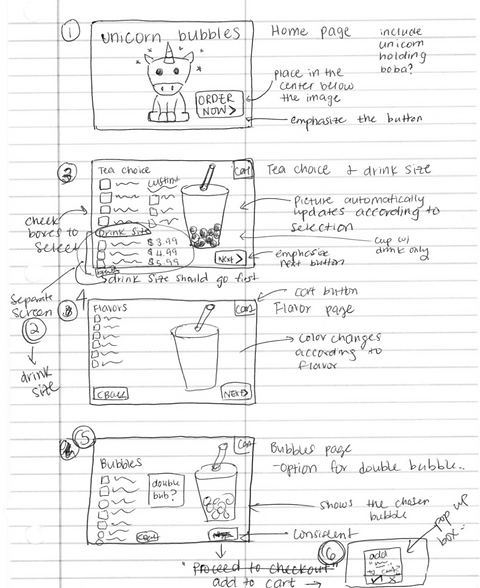 1
unicorn bubbles
ORDER
NOW >
Home page
include
unicorn
holding
boba?
place in the
center below
the image
emphasize the button
3
Tea choice
custom
Cart
Tea choice & drink size
check
boxes to
select
Drink Size
$3.99
$4.99
$5.99
Next >
Picture automatically
updates according to
selection
cup w/
drink only
2
emphasize
next button
drink size should go first
separate
screen
2
drink
size
4
Flavors
Cart
< Back
Next >
cart button
Flavor page
Color changes
according to
flavor
5
Bubbles
double
bub?
Cart
Bubbles page
- option for double bubble..
shows the chosen
bubble
consistent
"Proceed to checkout"
add to cart →
6
add
to cart?
pop up
box